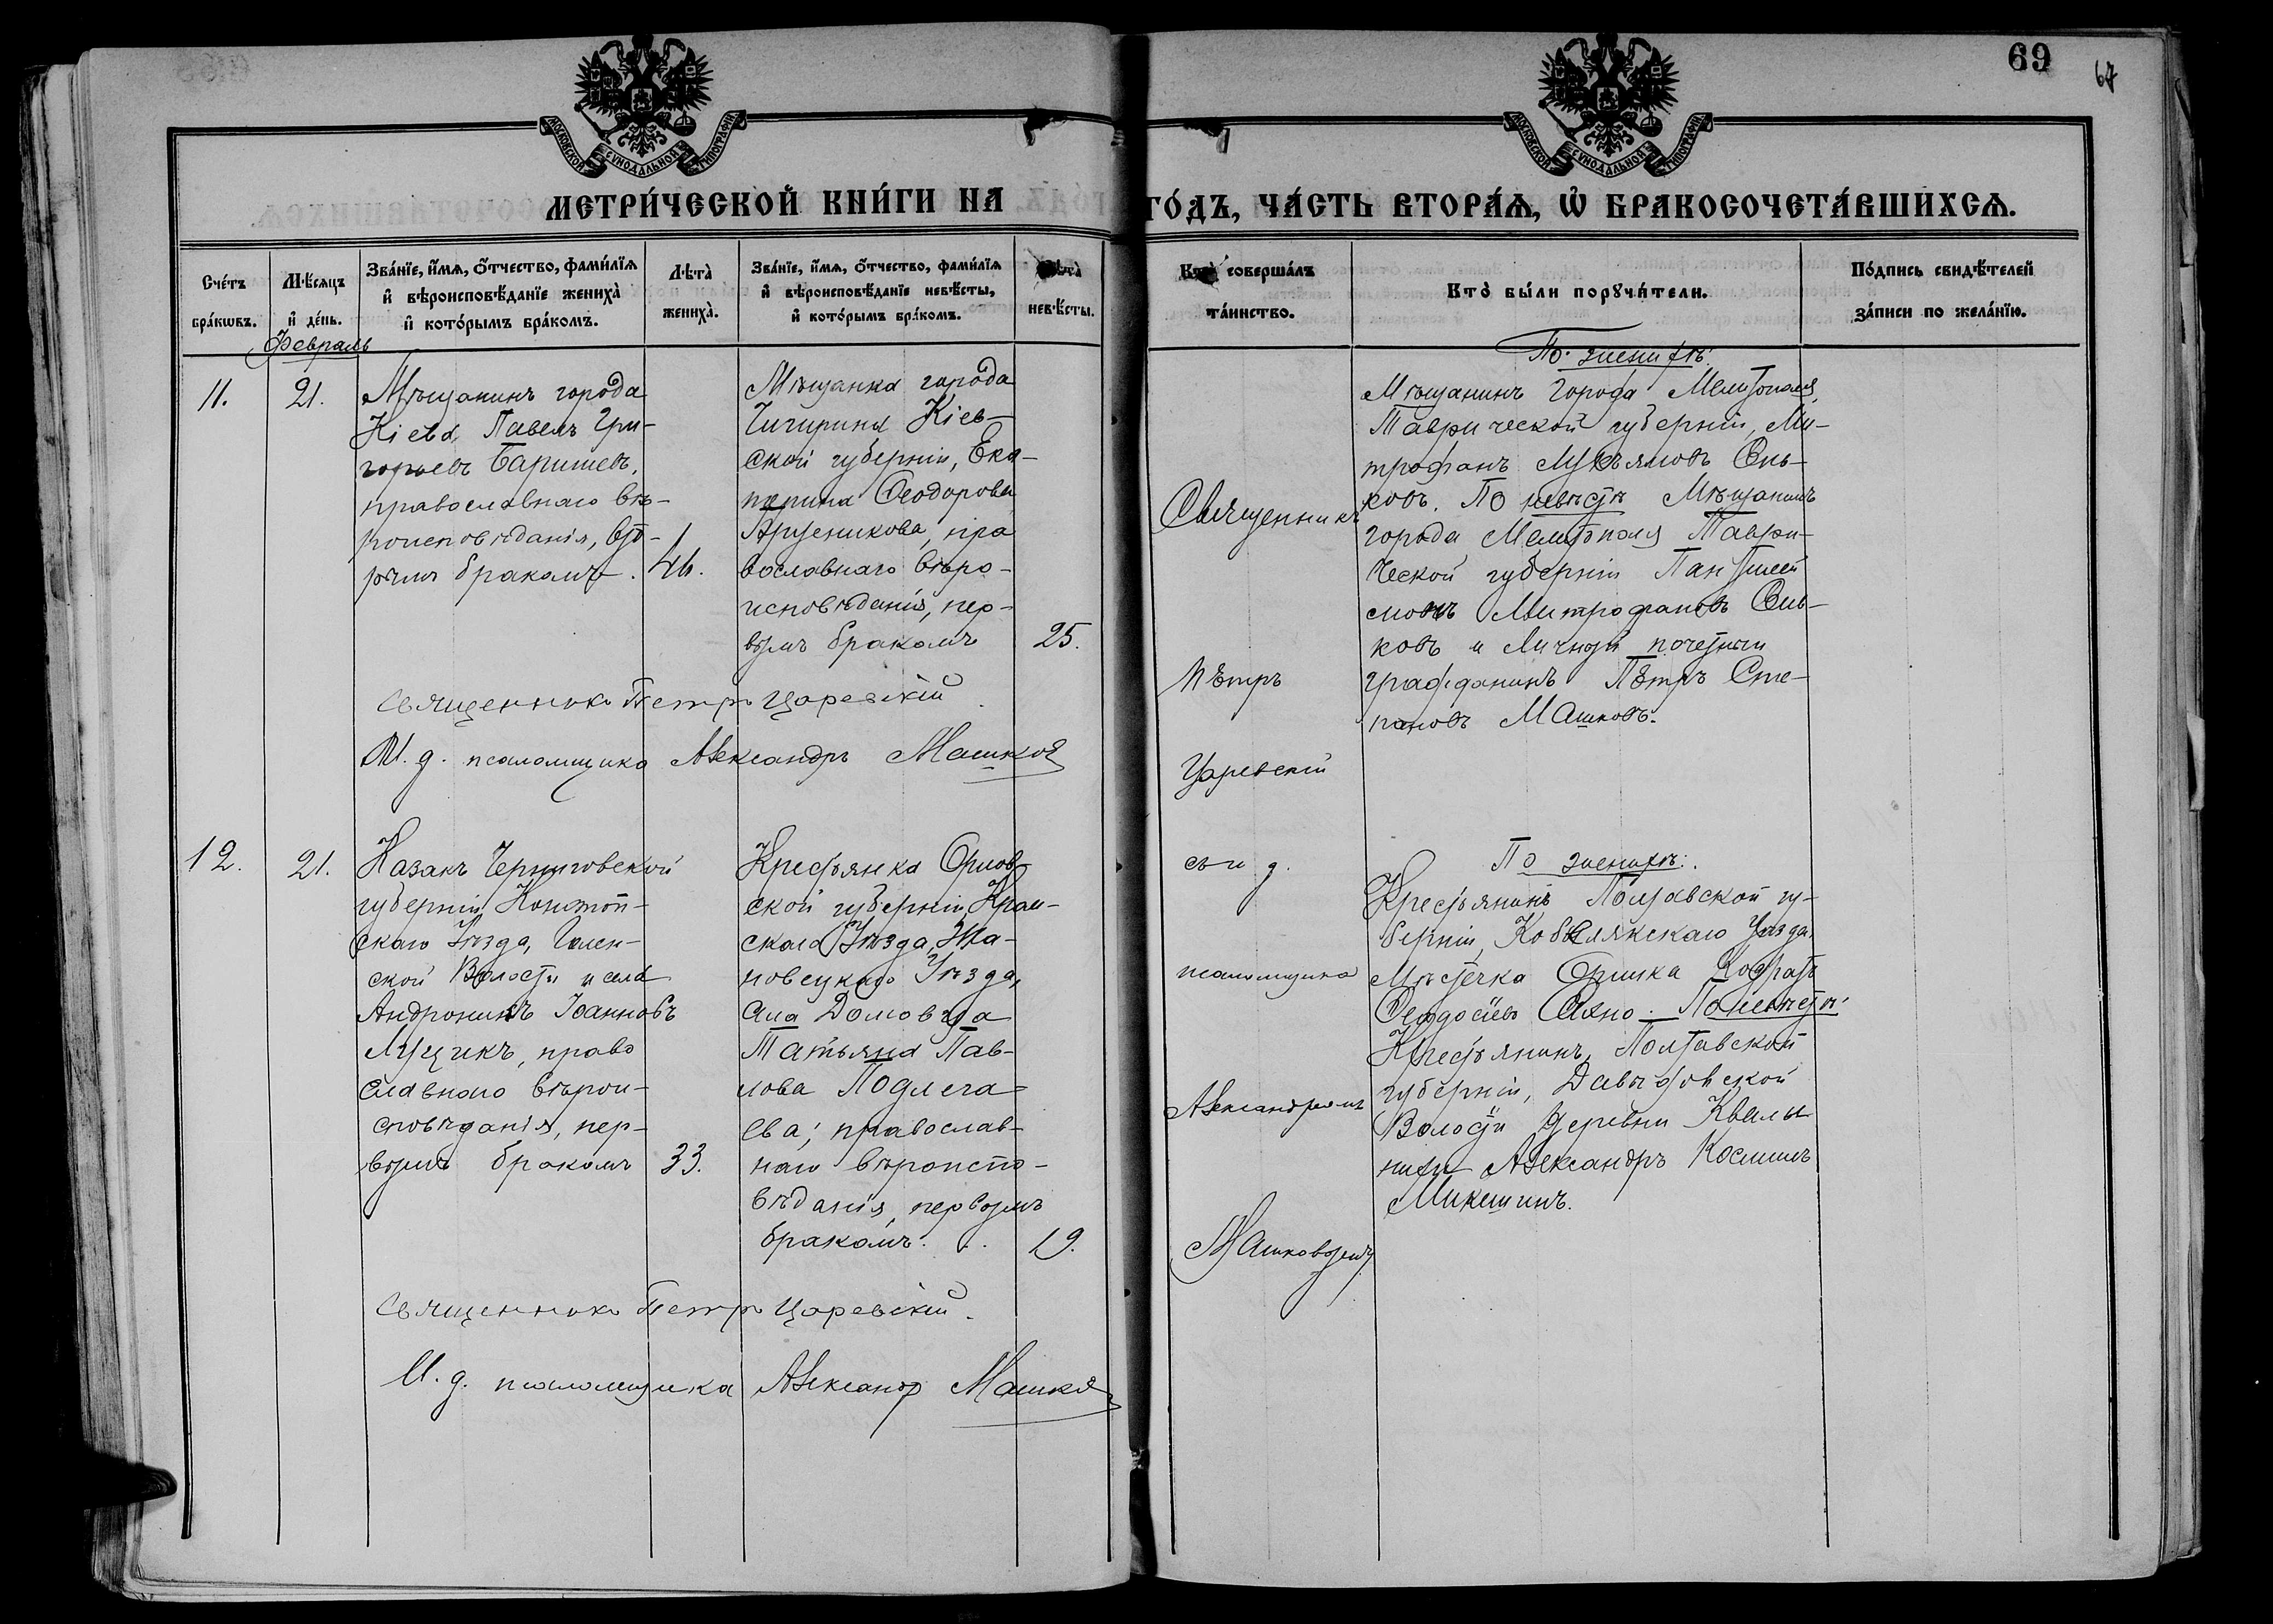 69
67
МОСКОВСКОЙ СУНОДАЛЬНОЙ ТИПОГРАФІИ
МОСКОВСКОЙ СУНОДАЛЬНОЙ ТИПОГРАФІИ
МЕТРИ́ЧЕСКОЙ КНИ́ГИ НА ГО́ДЪ, ЧА́СТЬ ВТОРА́Ѧ, Ѡ҆ БРАКОСОЧЕТА́ВШИХСѦ.
Сче́тъ
бра́кѡвъ.
Мѣ́сяцъ
и҆ де́нь.
Зва́нїе, и҆́мѧ, ѻ҆́тчество, фами́лїѧ
и҆ вѣроисповѣ́данїе жениха̀
и҆ кото́рымъ бра́комъ.
Лѣта̀
жениха̀.
Зва́нїе, и҆́мѧ, ѻ҆́тчество, фами́лїѧ
и҆ вѣроисповѣ́данїе невѣ́сты,
и҆ кото́рымъ бра́комъ.
Лѣта̀
невѣ́сты.
Кто̀ соверша́лъ
та́инство.
Кто̀ бы́ли порꙋчи́тели.
По́дпись свидѣ́телей
за́писи по жела́нїю.
Февраль
11.
21.
Мѣщанинъ города
Кіева, Павелъ Гри-
горьевъ Баришевъ,
православнаго вѣ-
роисповѣданія, вто-
рымъ бракомъ.
46.
Мѣщанка города
Чигирина Кіев-
ской губерніи, Ека-
терина Ѳеодорова
пра
вославнаго вѣро-
исповѣданія, пер-
вымъ бракомъ
25.
Священникъ
Пѣтръ
Царевскій
съ и д.
псаломщика
Александромъ
Машковымъ
По женихѣ:
Мѣщанинъ города Мелитополя,
Таврической губерніи, Ми-
трофанъ Лукьяновъ
ковъ. По невѣстѣ Мѣщанинъ
города Мелитополя Таври-
ческой губерніи Пантилей
моновъ Митрофановъ
ковъ и Личный почетный
гражданинъ Пѣтръ Сте-
пановъ Машковъ.
Священникъ Петръ Царевскій.
И. д. псаломщика Александръ Машковъ
12.
21.
Казакъ Черниговской
губерніи, Конотоп-
скаго Уѣзда,
ской Волости и села
Андроникъ Іоанновъ
Лущикъ, право
славнаго вѣрои-
сповѣданія, пер-
вымъ бракомъ
33.
Крестьянка Орлов
ской губерніи,
скаго Уѣзда,
новецкаго Уѣзда,
села
Татьяна Пав-
лова Подлега-
ева; православ-
наго вѣроиспо-
вѣданія, первымъ
бракомъ. . .
19.
По женихѣ:
Крестьянинъ Полтавской гу-
берніи, Кобелякскаго Уѣзда,
Мѣстечка
Ѳеодосіевъ По невѣстѣ:
Крестьянинъ Полтавской
губерніи, Давыдовской
Волости деревни
Александръ Косминъ
Микишинъ.
Священникъ Петръ Царевскій.
И. д. псаломщика Александръ Машковъ